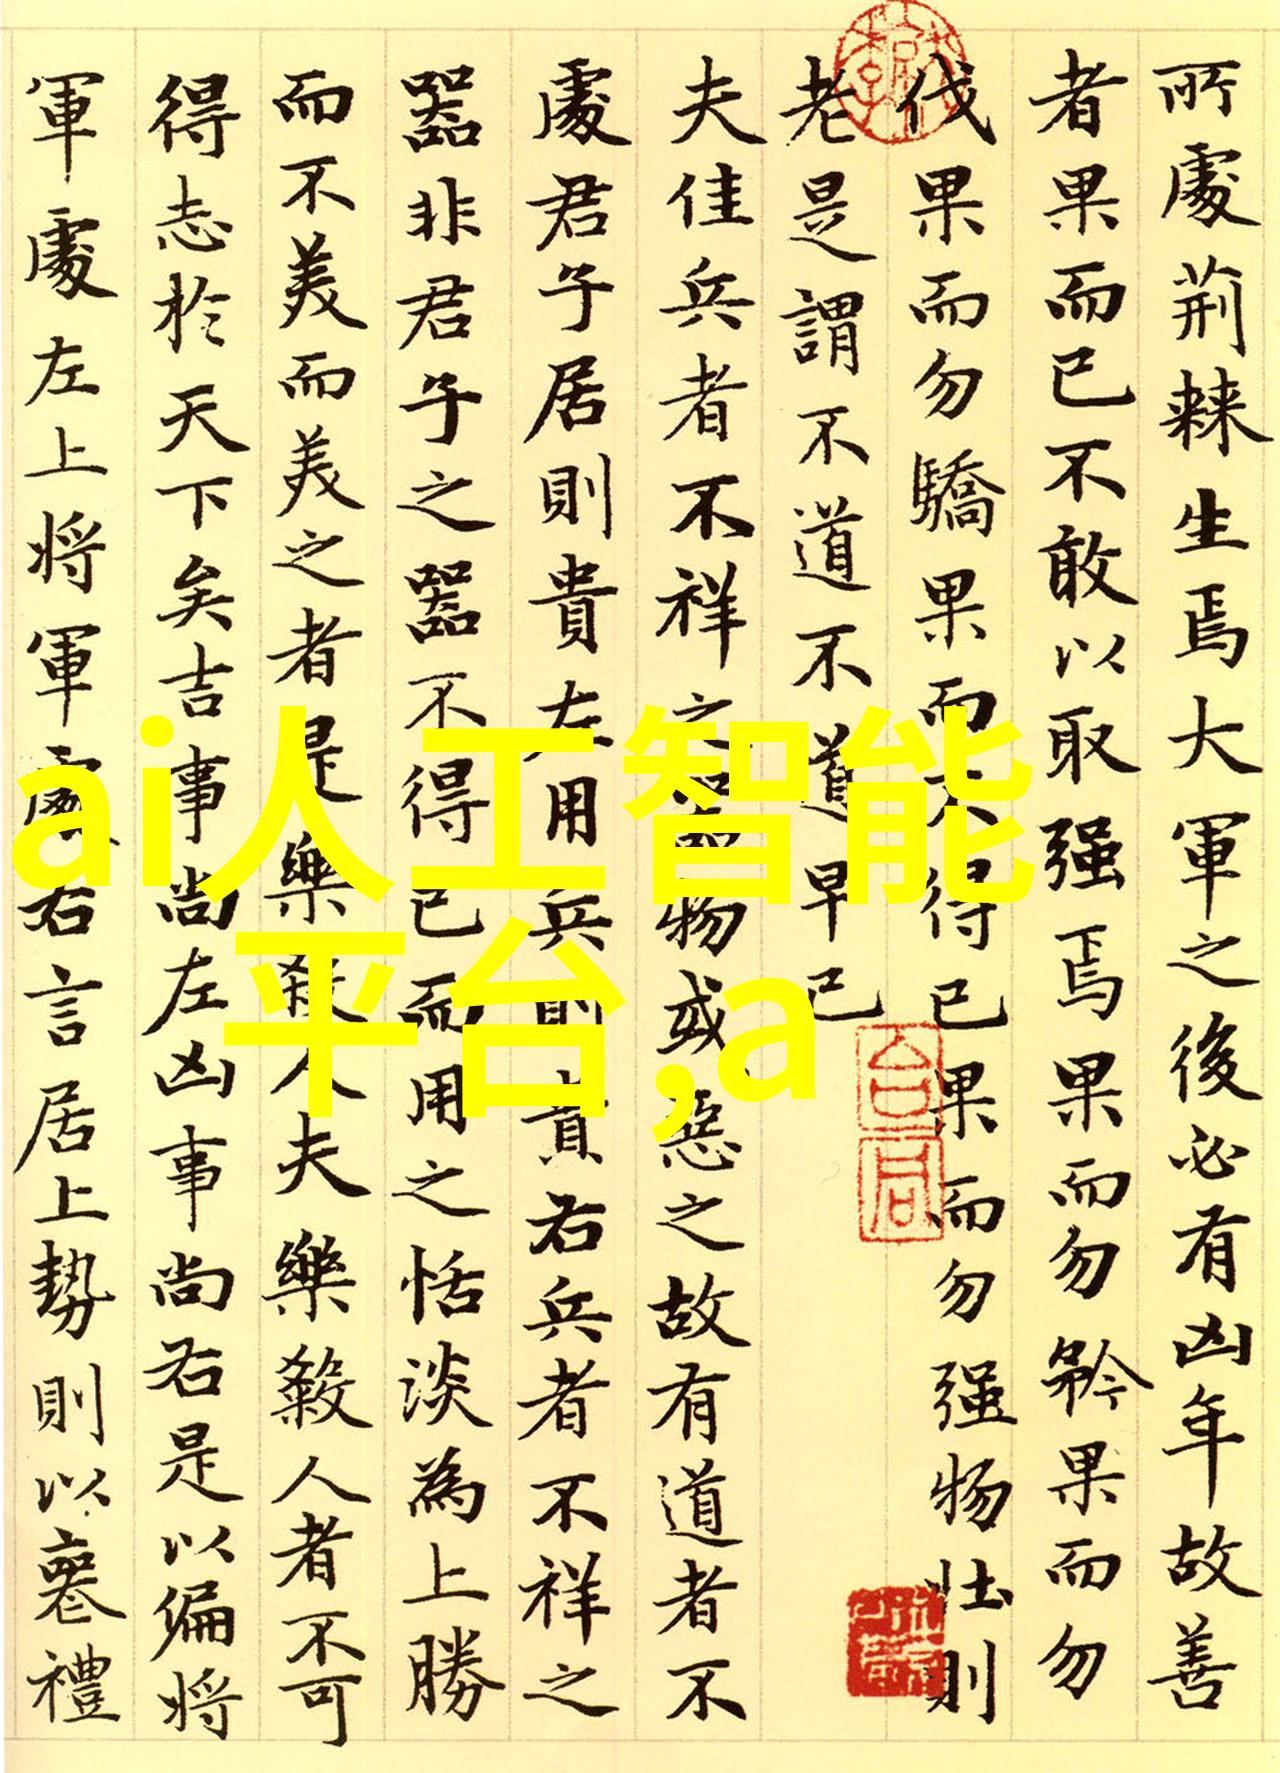 所處荊棘生焉大軍之後必有凶年故善
者果而已不敢以取强焉果而勿矜果而勿
伐果而勿驕果而不得已果而勿强物壮則
老是謂不道不道早已
夫佳兵者不祥之器物或惡之故有道者不
處君子居則貴左用兵則貴右兵者不祥之
器非君子之器不得已而用之恬淡為上勝
而不美而美之者是樂殺人夫樂殺人者不可
得志於天下矣吉事尚左凶事尚右是以偏将
軍處左上将軍處右言居上勢則以喪禮
ai人工智能
平台,a